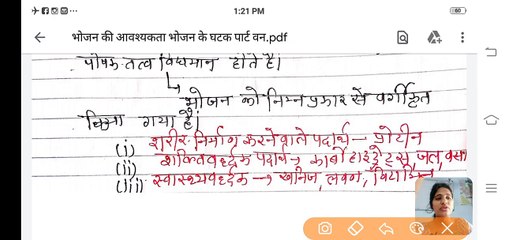 1:21 PM
60
भोजन की आवश्यकता भोजन के घटक पार्ट वन.pdf
पोषक तत्व विद्यमान होते है।
भोजन को निम्न प्रकार से वर्गीकृत
किया गया है।
(i) शरीर निर्माण करने वाले पदार्थ → प्रोटीन
(ii) शक्तिवर्द्धक पदार्थ → कार्बोहाइड्रेट्स, जल, वसा
(iii) स्वास्थ्यवर्द्धक → खनिज, लवण, विटामिन